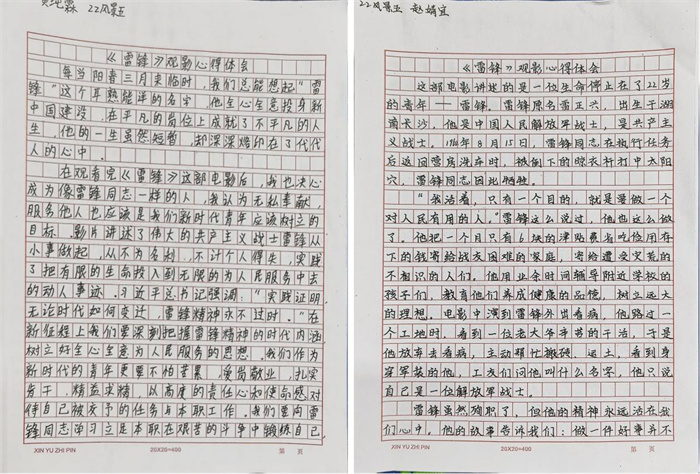 纯霖 22风景五
《雷锋》观影心得体会
每当阳春三月来临时，我们总能想起“雷
锋”这个耳熟能详的名字，他全心全意投身新
中国建设，在平凡的岗位上成就了不平凡的人
生，他的一生虽然短暂，却深深烙印在了代代
人的心中。
在观看完《雷锋》这部电影后，我也决心
成为像雷锋同志一样的人，我认为无私奉献，
服务他人也应该是我们新时代青年应该树立的
目标。影片讲述了伟大的共产主义战士雷锋从
小事做起，从不为名利，不计个人得失，实践
了把有限的生命投入到无限的为人民服务中去
的动人事迹。习近平总书记强调：“实践证明
无论时代如何变迁，雷锋精神永不过时。”在
新征程上我们要深刻把握雷锋精神的时代内涵
树立好全心全意为人民服务的思想。我们作为
新时代的青年更要不怕苦累，爱岗敬业，扎实
务干，精益求精，以高度的责任心和使命感对
待自己被交予的任务与本职工作。我们要向雷
锋同志学习立足本职在艰苦的斗争中锻炼自己
XIN YU ZHI PIN 20X20=400 第 页
22风景五 赵娟宜
《雷锋》观影心得体会
这部电影讲述的是一位生命停止在了22岁
的青年——雷锋。雷锋原名雷正兴，出生于湖
南长沙，他是中国人民解放军战士，是共产主
义战士。1962年8月15日，雷锋同志在执行任务
后返回营房洗车时，被倒下的晾衣杆打中太阳
穴，雷锋同志因此牺牲。
“我活着，只有一个目的，就是要做一个
对人民有用的人。”雷锋这么说过，他也这么做
了。他把一个月只有6块的津贴费省吃俭用存
下的钱寄给战友困难的家庭，寄给遭受灾荒的
不相识的人们。他用业余时间辅导附近学校的
孩子们，教育他们养成健康的品德，树立远大
的理想。电影中演到雷锋外出看病，他路过一
个工地时，看到一位老大爷辛苦的干活，于是
他放弃去看病，主动帮忙搬砖、运土，看到身
穿军装的他，工友们问他叫什么名字，他只说
自己是一位解放军战士。
雷锋虽然殉职了，但他的精神永远活在我
们心中。他的故事告诉我们：做一件好事并不
XIN YU ZHI PIN 20X20=400 第 页